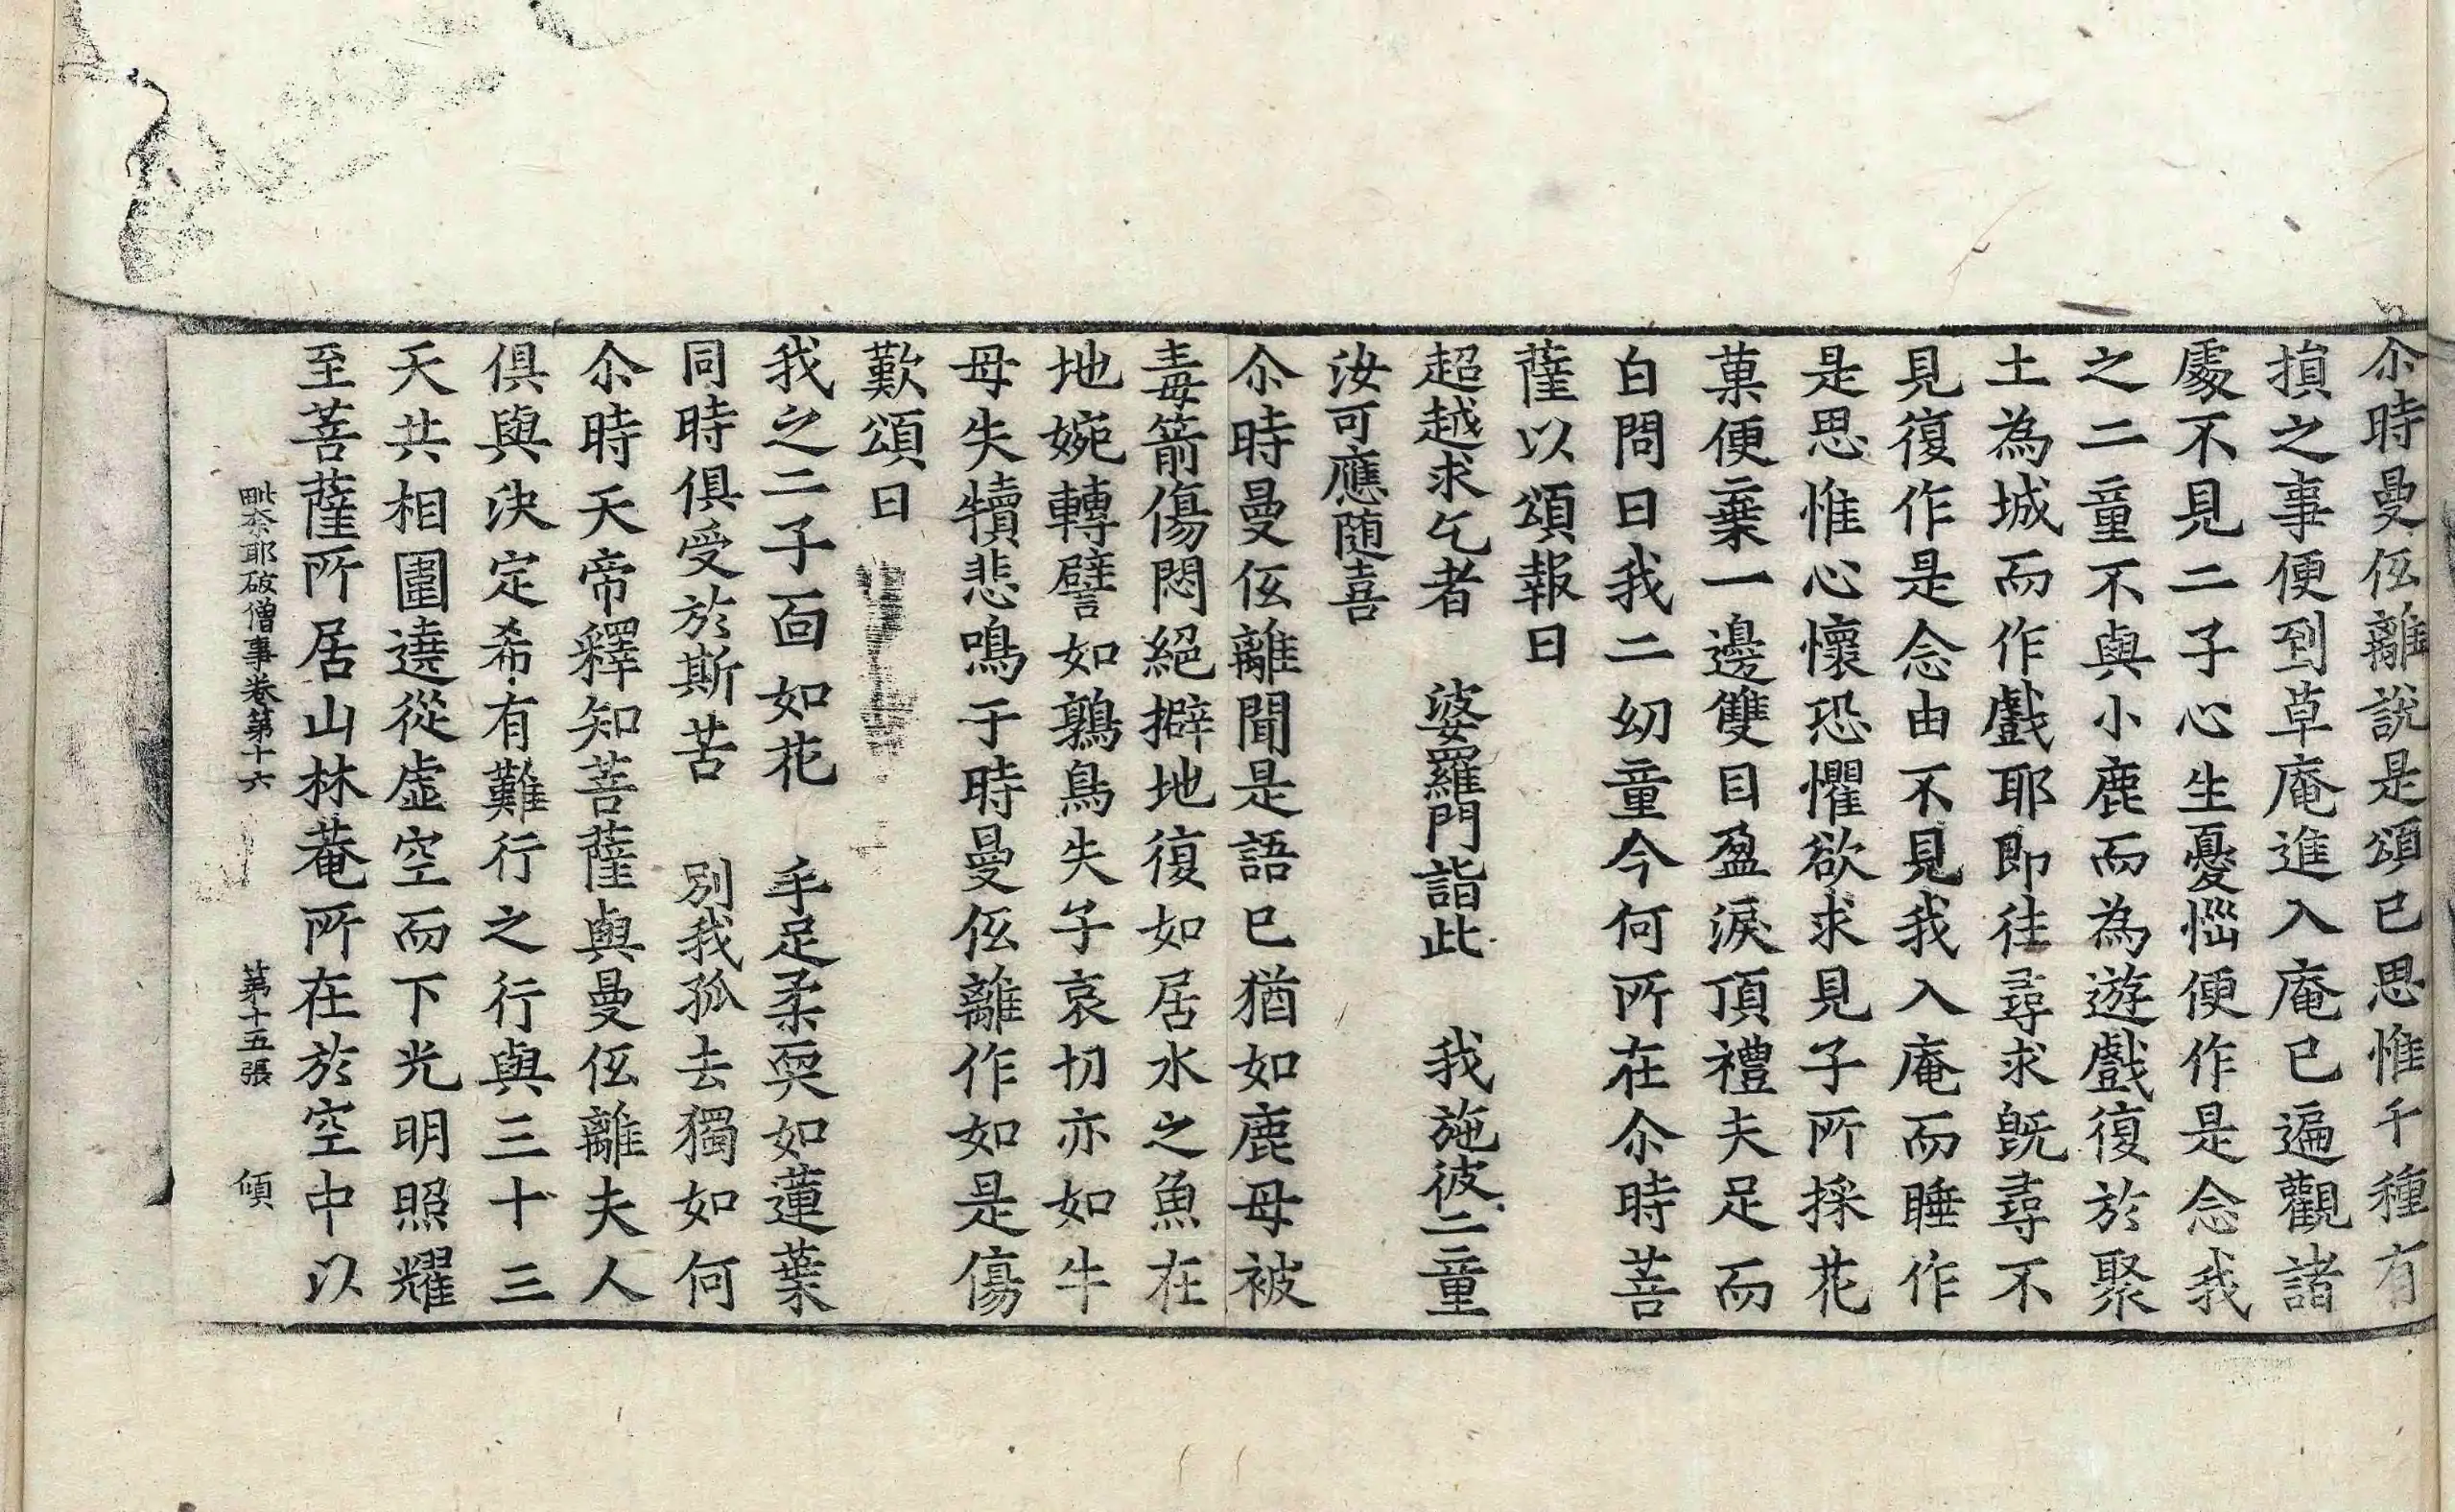 尒時曼伭離說是頌已思惟千種有
損之事便到草庵進入庵已遍觀諸
處不見二子心生憂惱便作是念我
之二童不與小鹿而為遊戲復於聚
土為城而作戲耶即徃尋求旣尋不
見復作是念由不見我入庵而睡作
是思惟心懷恐懼欲求見子所採花
菓便棄一邊雙目盈淚頂禮夫足而
白問曰我二幼童今何所在尒時菩
薩以頌報曰
超越求乞者　婆羅門詣此　我施彼二童
汝可應随喜
尒時曼伭離聞是語已猶如鹿母被
毒箭傷悶絕擗地復如居水之魚在
地婉轉譬如鶉鳥失子哀切亦如牛
母失犢悲鳴于時曼伭離作如是傷
歎頌曰
我之二子面如花　手足柔耎如蓮葉
同時俱受於斯苦　別我孤去獨如何
尒時天帝釋知菩薩與曼伭離夫人
俱與決定希有難行之行與三十三
天共相圍遶從虛空而下光明照耀
至菩薩所居山林菴所在於空中以
毗奈耶破僧事卷第十六　第十五張　傾